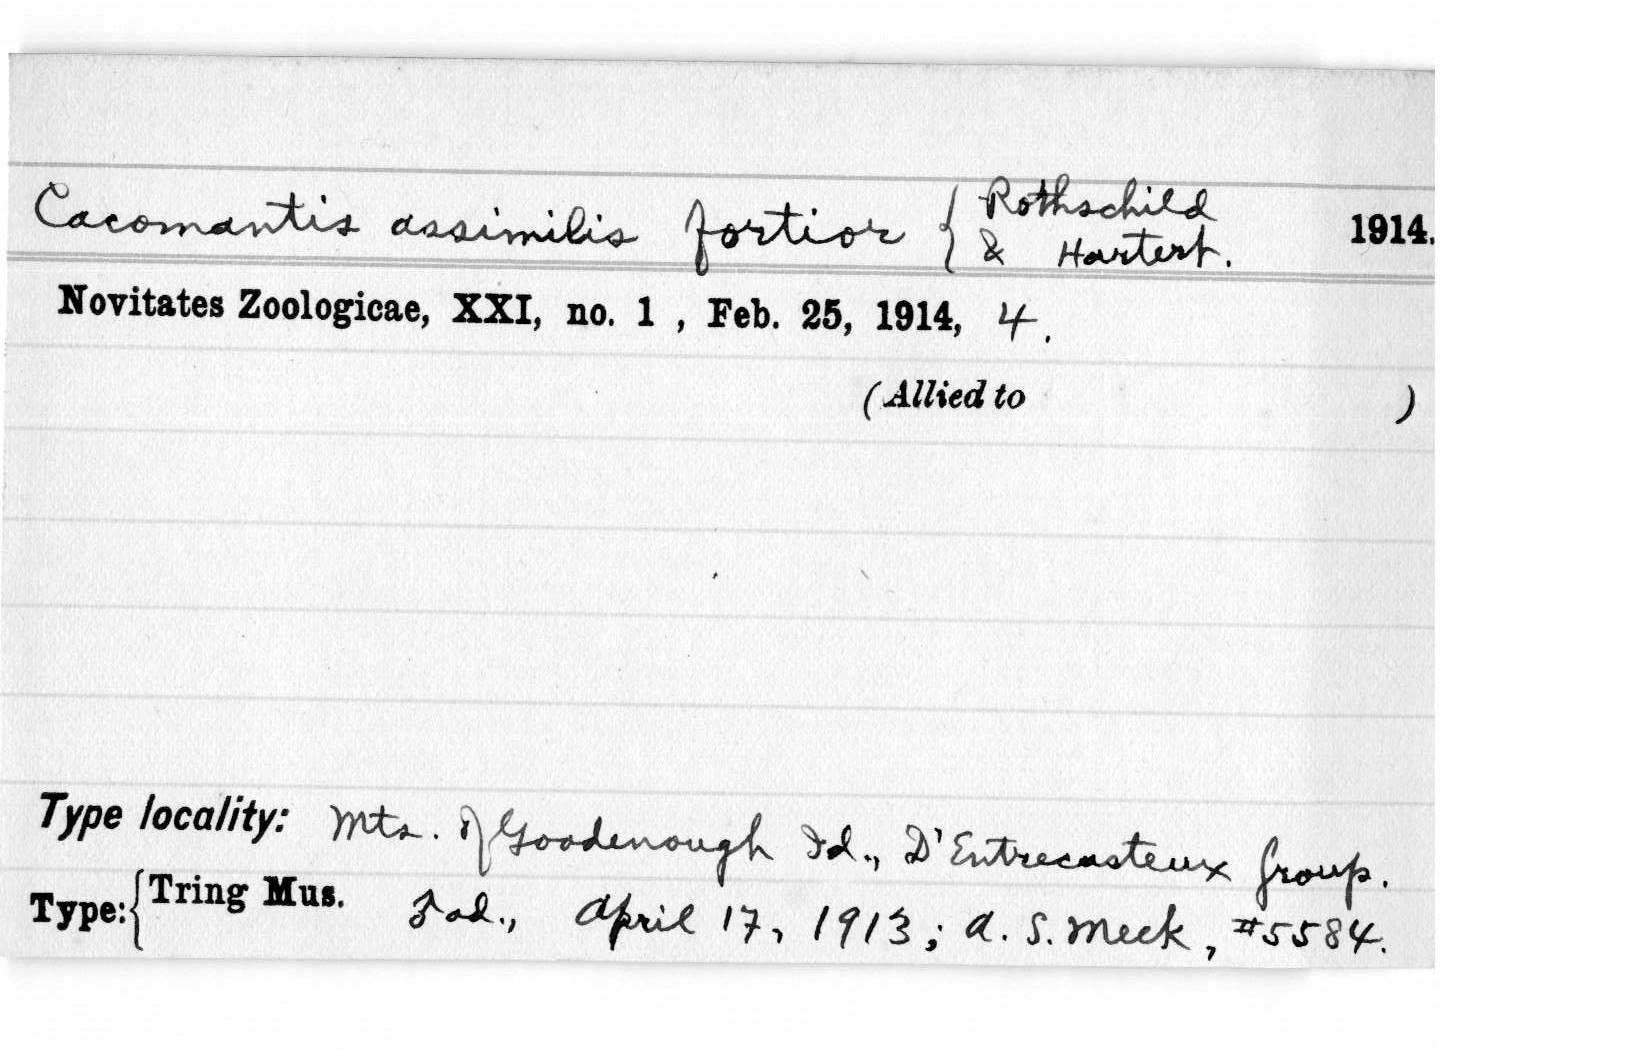 Cacomantis assimilis fortior { Rothschild & Hartert. 1914.
Novitates Zoologicae, XXI, no. 1 , Feb. 25, 1914, 4.
(Allied to )
Type locality: Mts. of Goodenough Id., D'Entrecasteux Group.
Type: { Tring Mus. ad., April 17, 1913; A. S. Meek, #5584.